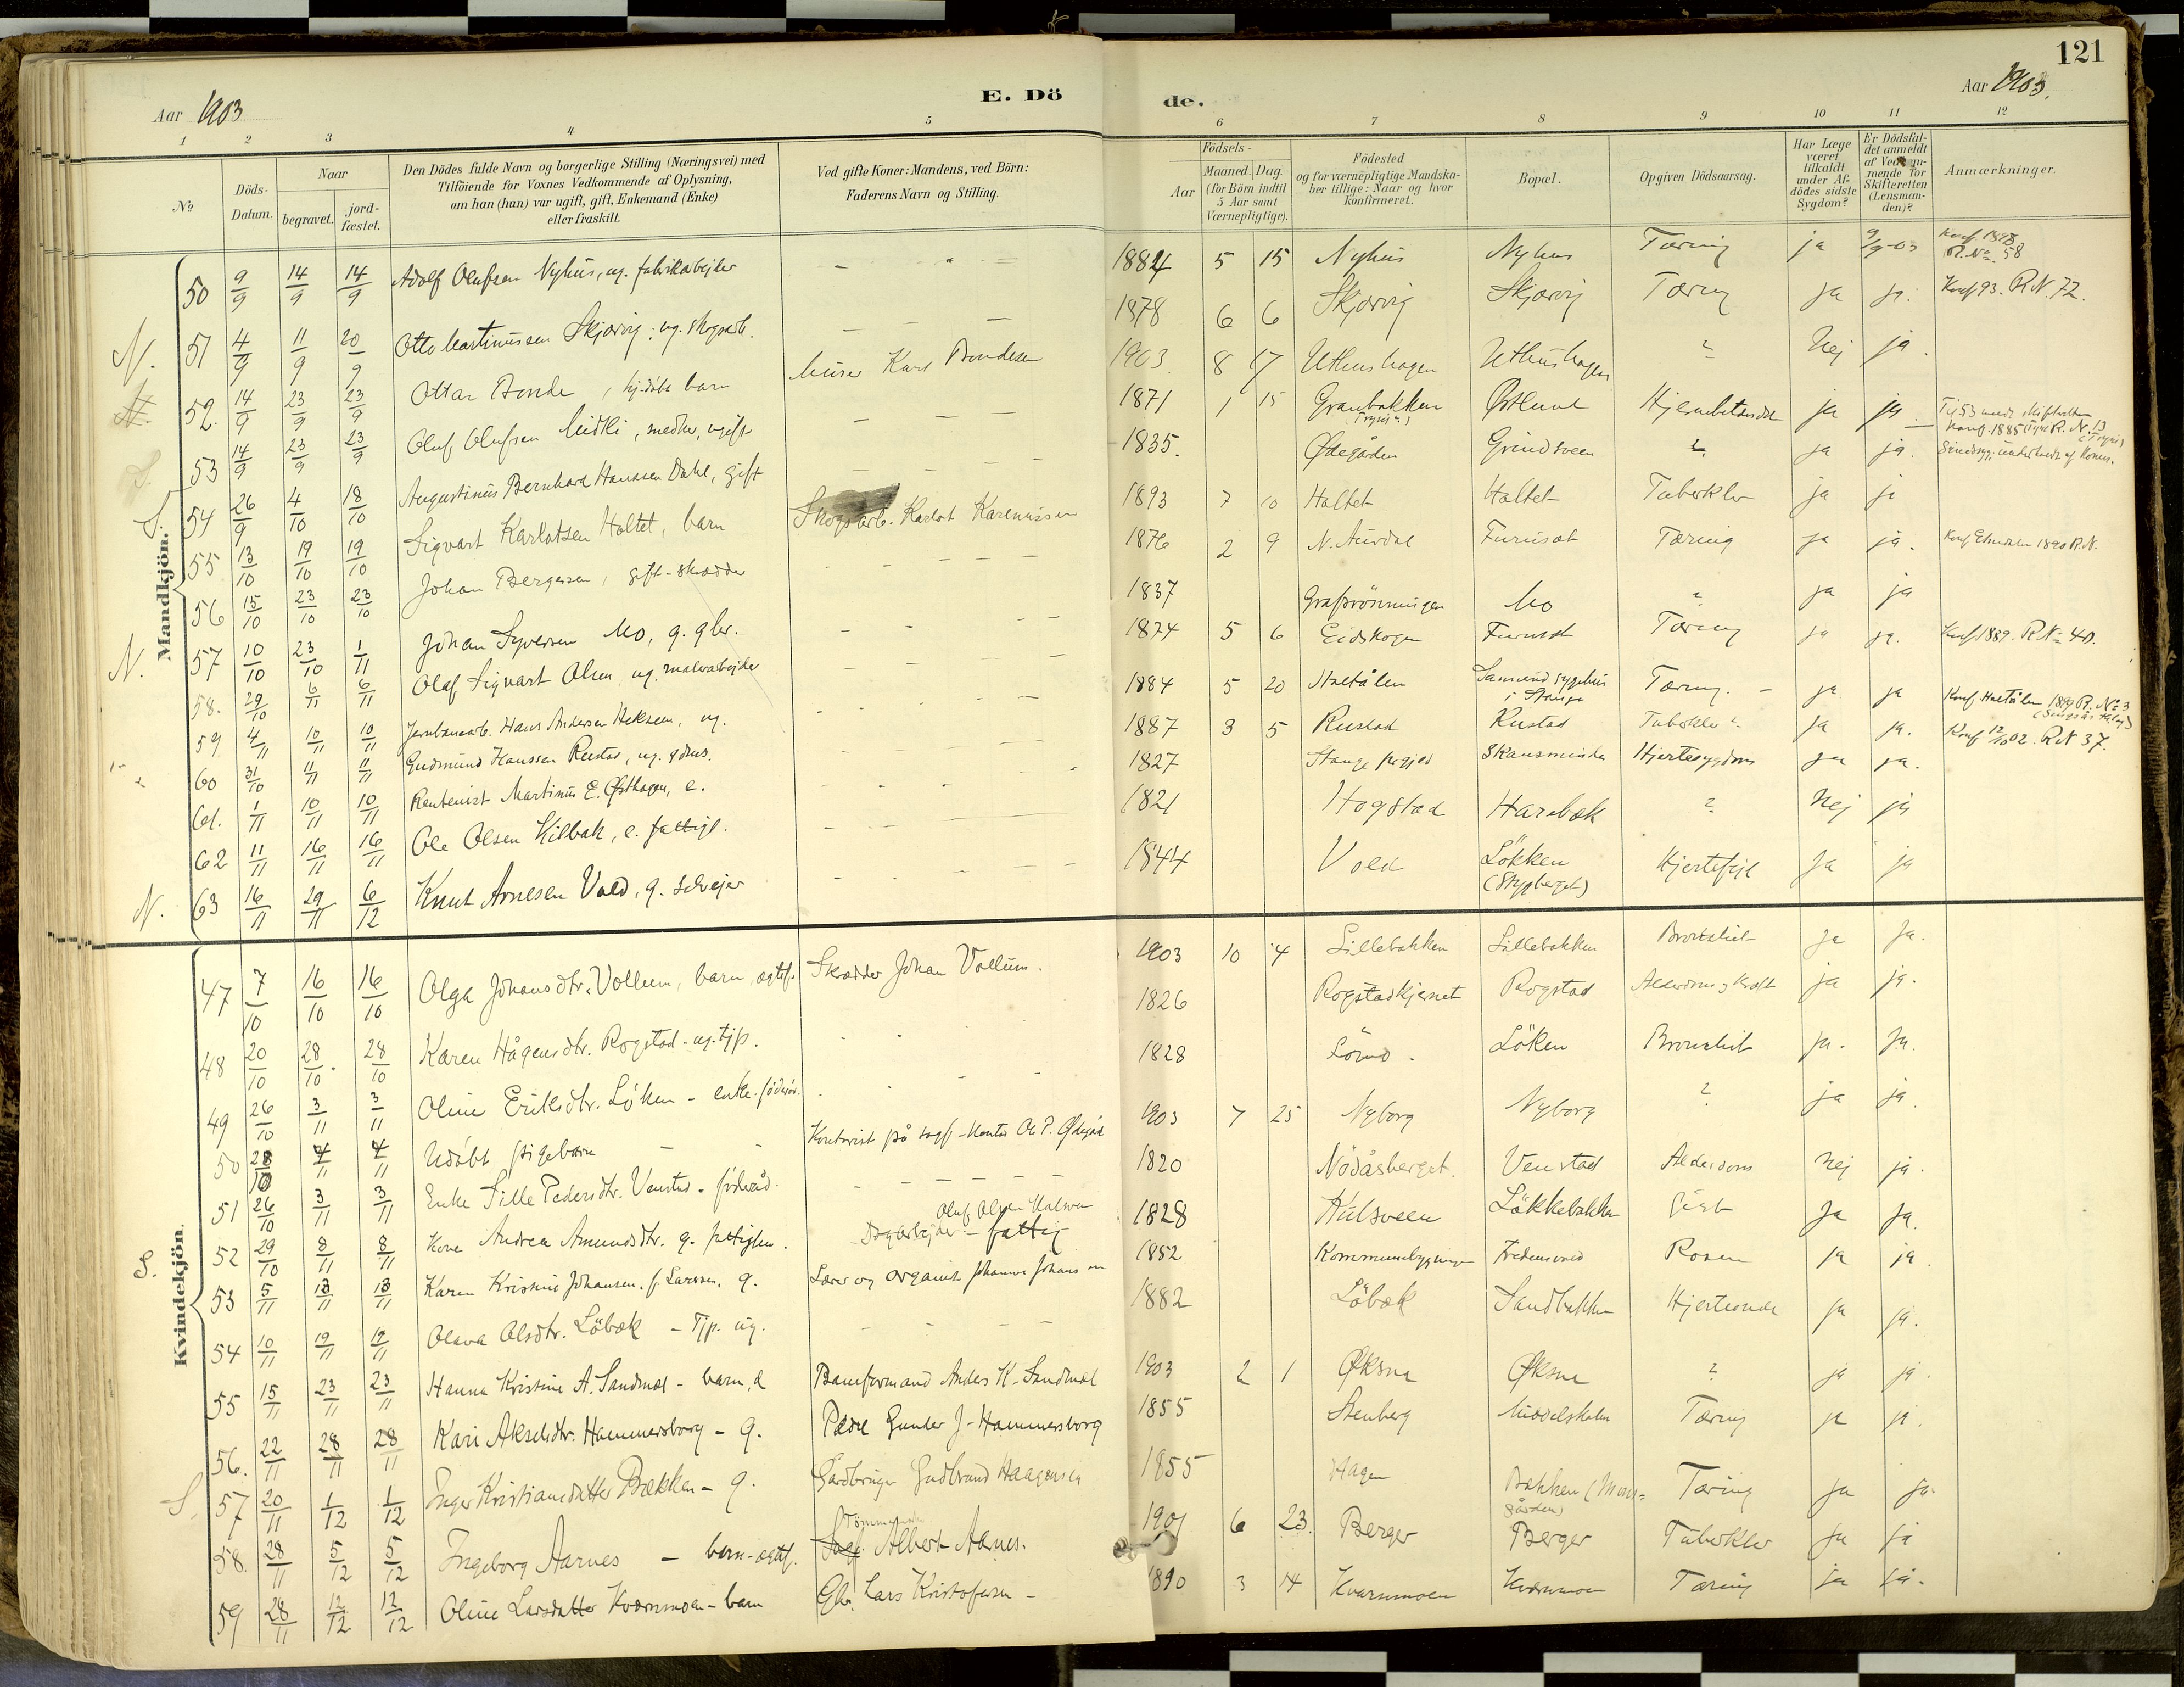 121
Aar 1903
E. Dö
de.
Aar 1903.
1 2 3 4 5 6 7 8 9 10 11 12
No
Döds-Datum.
Naar
begravet.
jord-fæstet.
Den Dödes fulde Navn og borgerlige Stilling (Næringsvei) med
Tilföiende for Voxnes Vedkommende af Oplysning,
om han (hun) var ugift, gift, Enkemand (Enke)
eller fraskilt.
Ved gifte Koner: Mandens, ved Börn:
Faderens Navn og Stilling.
Födsels-
Aar
Maaned. Dag.
(for Börn indtil
5 Aar samt
Værnepligtige).
Födested
og for værnepligtige Mandska-
ber tillige: Naar og hvor
konfirmeret.
Bopæl.
Opgiven Dödsaarsag.
Har Læge
været
tilkaldt
under Af-
dödes sidste
Sygdom?
Er Dödsfal-
det anmeldt
af Vedkom-
mende for
Skifteretten
(Lensman-
den)?
Anmærkninger.
Mandkjön.
50 9/9 14/9 14/9 Adolf Olufsen Nyhus, ug. fabrikarbejder 1884 5 15 Nyhus Nyhus Tæring ja 9/9-03 Konf. 1898 R.No. 58
N. 51 4/9 11/9 20/9 Otto Martinussen Skjærvig: ug. skogsarb. 1878 6 6 Skjærvig Skjærvig Tæring ja ja. Konf 93. R.N. 72.
N. 52. 14/9 23/9 23/9 Ottar Bonde, hj.döbt barn Murer Karl Bondesen 1903. 8 17 Uthushagen Uthushagen ? Nej ja.
S. 53 14/9 23/9 23/9 Oluf Olufsen Midtli, smedker, ugift 1871 1 15 Granbakken Østlund ja ja
S. 54 26/9 4/10 18/10 Augustinus Bernhard Hanssen Dahl, gift 1835. Ødegården Grindsveen ? ja ja.
55 13/10 19/10 19/10 Sigvart Karlotsen Holtet, barn Skogsarb. Karlot Karenussen 1893 7 10 Holtet Holtet Tuberkler ja ja
56 15/10 23/10 23/10 Johan Bergersen, gift-skrædder 1876 2 9 N. Aurdal Furuset Tæring ja ja. Konf 1890 R.N.
N. 57 10/10 23/10 1/11 Johan Syversen Mo, g. gbr. 1837 Grafrönningen Mo ? ja ja
58. 29/10 6/11 6/11 Olaf Sigvart Olsen ug. malerarbejder 1874 5 6 Eidskogen Furuset Tæring ja ja. Konf 1889. R.No 40.
59 4/11 10/11 10/11 Jernbanearb. Hans Andersen Heksem, ug. 1884 5 20 Holtålen Sanmund sygehus i Stange Tæring. ja ja Konf Holtålen R.No 3
60 31/10 11/11 11/11 Gudmund Hanssen Rustad, ug. gdbrs. 1887 3 5 Rustad Rustad Tuberkler ja ja. Konf 12/10 02. R.N 37.
61. 1/11 10/11 10/11 Rentenist Martinus E. Østhagen, e. 1827 Stange prgjed Skansminde Hjertesygdom ja ja.
62 11/11 16/11 16/11 Ole Olsen Kilbak, e. fattigl. 1821 Hogstad Harebæk ? Nej ja
N. 63 16/11 29/11 6/12 Knut Arnesen Vold, g. selvejer 1844 Vold Lökken Hjertefejl ja ja
Kvindekjön.
47 7/10 16/10 16/10 Olga Johansdtr. Vollum, barn, ægtef. Skrædder Johan Vollum. 1903 10 4 Lillebakken Lillebakken ja ja.
48 20/10 28/10 28/10 Karen Hågensdtr. Rogstad - ug. tjp. 1826 Rogstadkjernet Rogstad Alderdom og Kræft ja ja.
49 26/10 3/11 3/11 Oline Eriksdtr. Löken - enke. föderåd. 1828 Lömo. Löken Bronchit ja. ja.
50 28/10 4/11 4/11 Udöbt pigebarn Kontorist på Ole P. Ødegård 1903 7 25 Nyborg Nyborg ? ja ja
51 26/10 3/11 3/11 Enke Sille Pedersdtr. Venstad - föderåd. 1820 Nödåsberget. Venstad Alderdom Nej ja.
S. 52 29/10 8/11 8/11 Kone Andrea Amundsdtr. g. fattiglem. Oluf Olsen Dagarbejder - fattig 1828 Kulsveen Lökkebakken Gigt ja ja.
53 5/11 13/11 13/11 Karen Kristine Johansen. f. Larssen, g. Lærer og organist Johannes Johansen 1852 Kommunebygningen Fredensvold Rosen ja ja
54 10/11 19/11 19/11 Olava Olsdtr. Löbæk - Tjp. ug. 1882 Löbæk Sandbakken Hjerteonde ja ja.
55 15/11 23/11 23/11 Hanna Kristine A. Sandmæl - barn, Baneformand Anders K. Sandmæl 1903 2 1 Øksna Øksna ? ja ja.
56. 22/11 28/11 28/11 Kari Akselsdtr. Hammersborg - g. Gunder J. Hammersborg 1855 Stenberg Middelskolen Tæring ja ja.
S. 57 20/11 1/12 1/12 Inger Kristiansdatter Bækken - g. Gårdbruger Gudbrand Haagensen 1855 Hagen Bækken Tæring ja ja.
58. 28/11 5/12 5/12 Ingeborg Aarnes - barn - ægtef. Albert Aarnes. 1901 6 23. Berger Berger Tuberkler ja ja
59 28/11 12/12 12/12 Oline Larsdatter Kværnmoen - barn Gbr. Lars Kristofersen - 1890 3 14 Kværnmoen Kværnmoen Tæring ja ja.